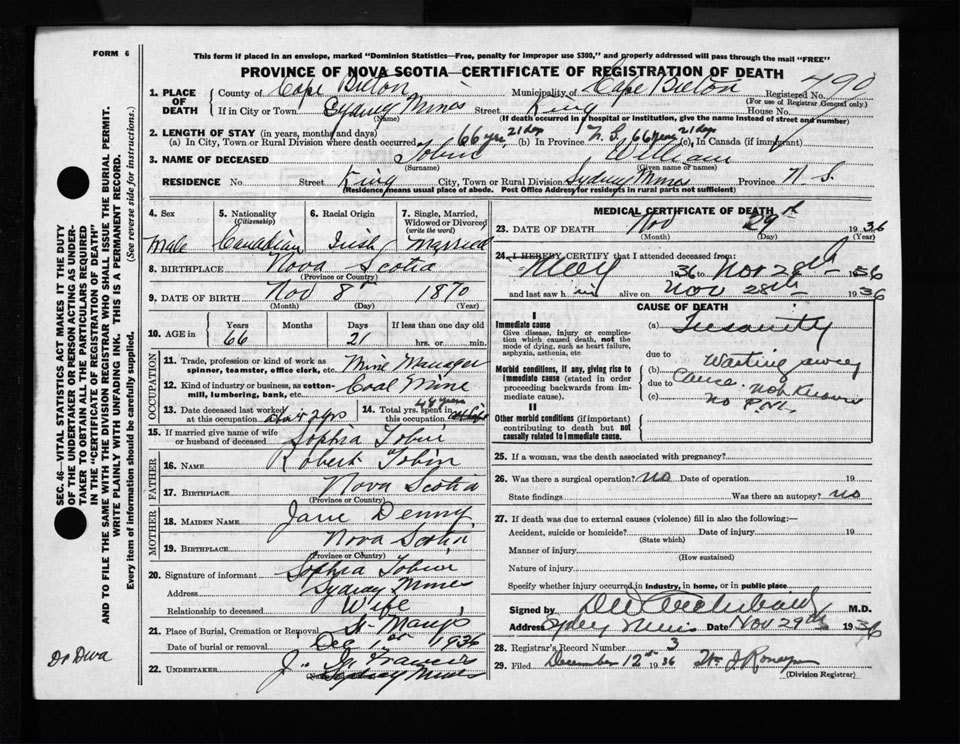 FORM 6
This form if placed in an envelope, marked "Dominion Statistics—Free, penalty for improper use $300," and properly addressed will pass through the mail "FREE"
PROVINCE OF NOVA SCOTIA—CERTIFICATE OF REGISTRATION OF DEATH
1. PLACE OF DEATH County of Cape Breton Municipality of Cape Breton Registered No. 490
(For use of Registrar General only)
If in City or Town Sydney Mines Street King House No.
(Name) (If death occurred in a hospital or institution, give the name instead of street and number)
2. LENGTH OF STAY (in years, months and days)
(a) In City, Town or Rural Division where death occurred 66 yrs 21 days (b) In Province N.S. 66 years 21 days (c) In Canada (if immigrant)
3. NAME OF DECEASED Tobin William
(Surname) (Given name or names)
RESIDENCE No. Street King City, Town or Rural Division Sydney Mines Province N. S.
(Residence means usual place of abode. Post Office Address for residents in rural parts not sufficient)
4. Sex 5. Nationality (Citizenship) 6. Racial Origin 7. Single, Married, Widowed or Divorced (write the word)
Male Canadian Irish Married
8. BIRTHPLACE Nova Scotia
(Province or Country)
9. DATE OF BIRTH Nov 8th 1870
(Month) (Day) (Year)
10. AGE in Years Months Days If less than one day old
66 21 hrs. or min.
OCCUPATION
11. Trade, profession or kind of work as spinner, teamster, office clerk, etc. Mine Manager
12. Kind of industry or business, as cotton-mill, lumbering, bank, etc. Coal Mine
13. Date deceased last worked at this occupation 14. Total yrs. spent in this occupation 48 years
15. If married give name of wife or husband of deceased Sophia Tobin
FATHER
16. NAME Robert Tobin
17. BIRTHPLACE Nova Scotia
(Province or Country)
MOTHER
18. MAIDEN NAME Jane Denny
19. BIRTHPLACE Nova Scotia
(Province or Country)
20. Signature of informant Sophia Tobin
Address Sydney Mines
Relationship to deceased Wife
21. Place of Burial, Cremation or Removal St. Marys
Date of burial or removal Dec 1st 1936
22. UNDERTAKER J. M. Francis
Sydney Mines
MEDICAL CERTIFICATE OF DEATH
23. DATE OF DEATH Nov 29th 1936
(Month) (Day) (Year)
24. I HEREBY CERTIFY that I attended deceased from:
May 1936 to Nov 28th 1936
and last saw him alive on Nov 28th 1936
CAUSE OF DEATH
I
Immediate cause
Give disease, injury or complication which caused death, not the mode of dying, such as heart failure, asphyxia, asthenia, etc.
(a) Insanity
due to
Morbid conditions, if any, giving rise to immediate cause (stated in order proceeding backwards from immediate cause).
(b) Wasting away
due to Cause not known
(c) no P.M.
II
Other morbid conditions (if important) contributing to death but not causally related to immediate cause.
25. If a woman, was the death associated with pregnancy?
26. Was there a surgical operation? no Date of operation 19
State findings Was there an autopsy? no
27. If death was due to external causes (violence) fill in also the following:—
Accident, suicide or homicide? Date of injury 19
(State which)
Manner of injury
(How sustained)
Nature of injury
Specify whether injury occurred in industry, in home, or in public place
Signed by Archibald M.D.
Address Sydney Mines Date Nov 29th 1936
28. Registrar's Record Number 3
29. Filed December 12th 1936
(Division Registrar)
SEC. 46—VITAL STATISTICS ACT MAKES IT THE DUTY
OF THE UNDERTAKER OR PERSON ACTING AS UNDER-
TAKER TO OBTAIN ALL THE PARTICULARS REQUIRED
IN THE "CERTIFICATE OF REGISTRATION OF DEATH"
AND TO FILE THE SAME WITH THE DIVISION REGISTRAR WHO SHALL ISSUE THE BURIAL PERMIT.
WRITE PLAINLY WITH UNFADING INK. THIS IS A PERMANENT RECORD.
Every item of information should be carefully supplied. (See reverse side for instructions.)